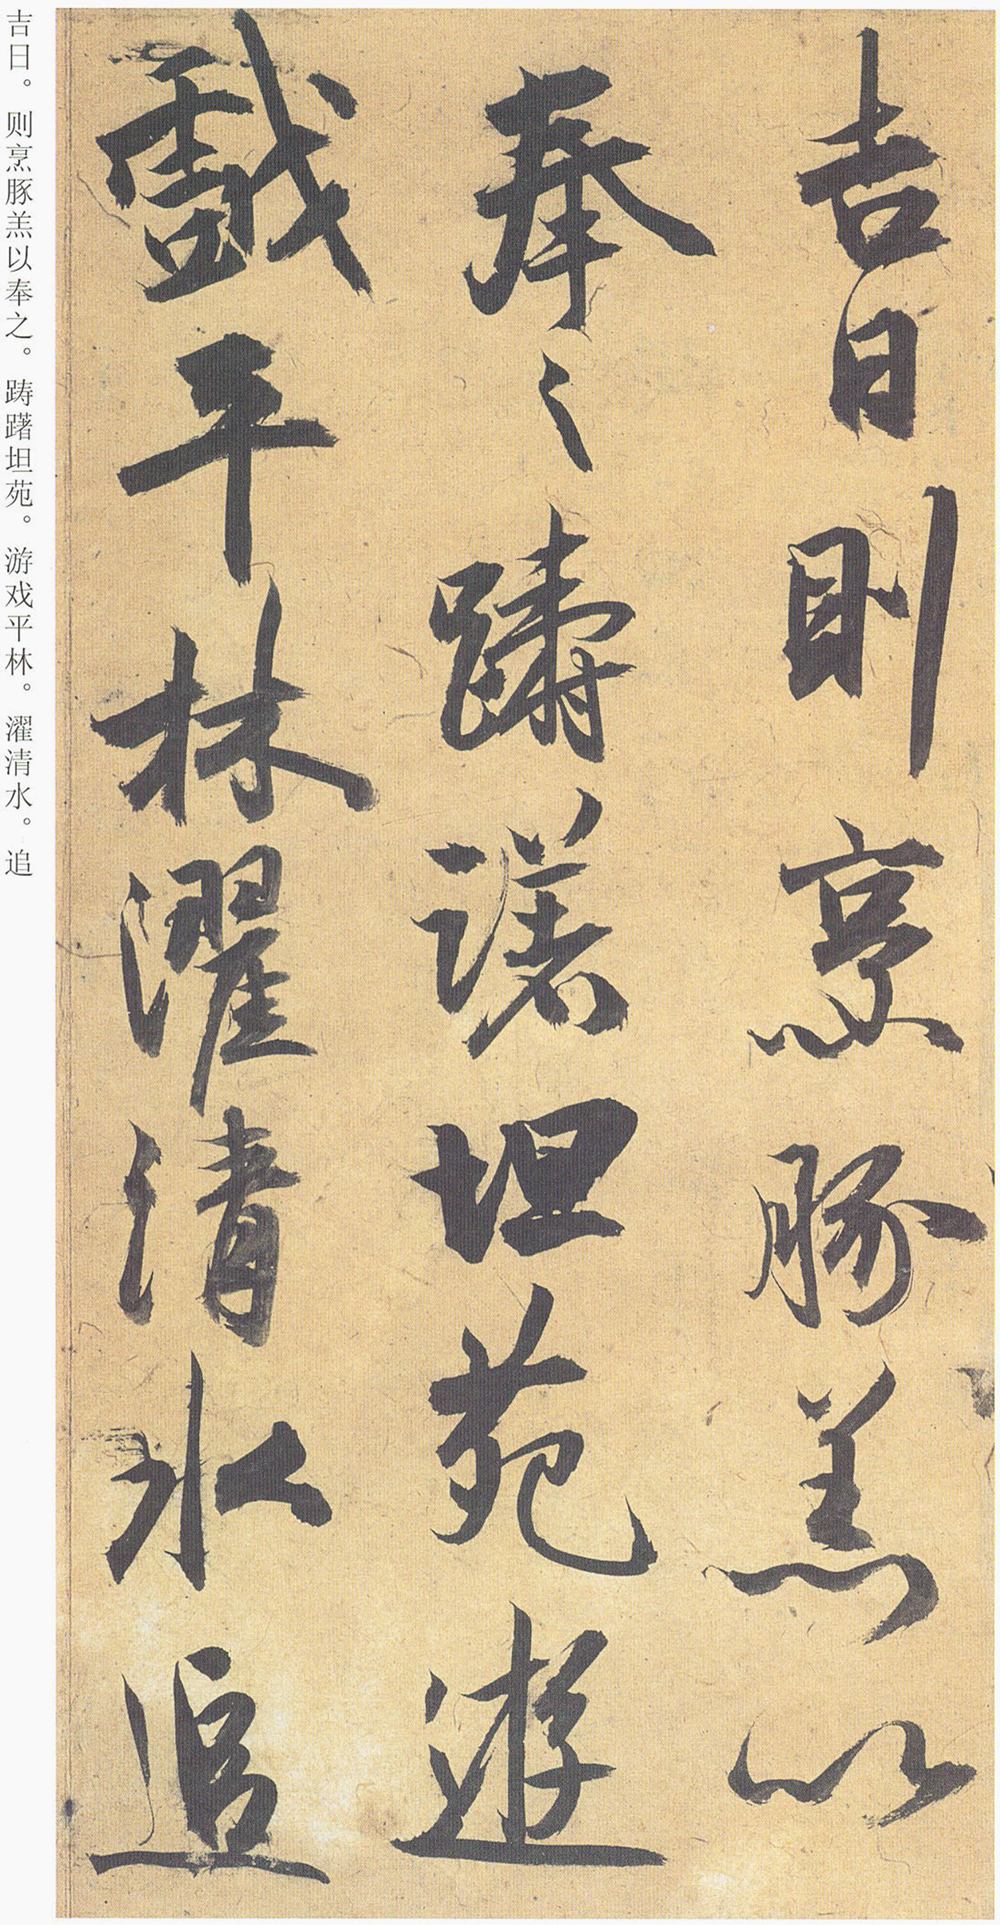 吉日則亨豚羔以
奉之躊躇坦苑遊
戲平林濯清水追
吉日。则烹豚羔以奉之。踌躇坦苑。游戏平林。濯清水。追